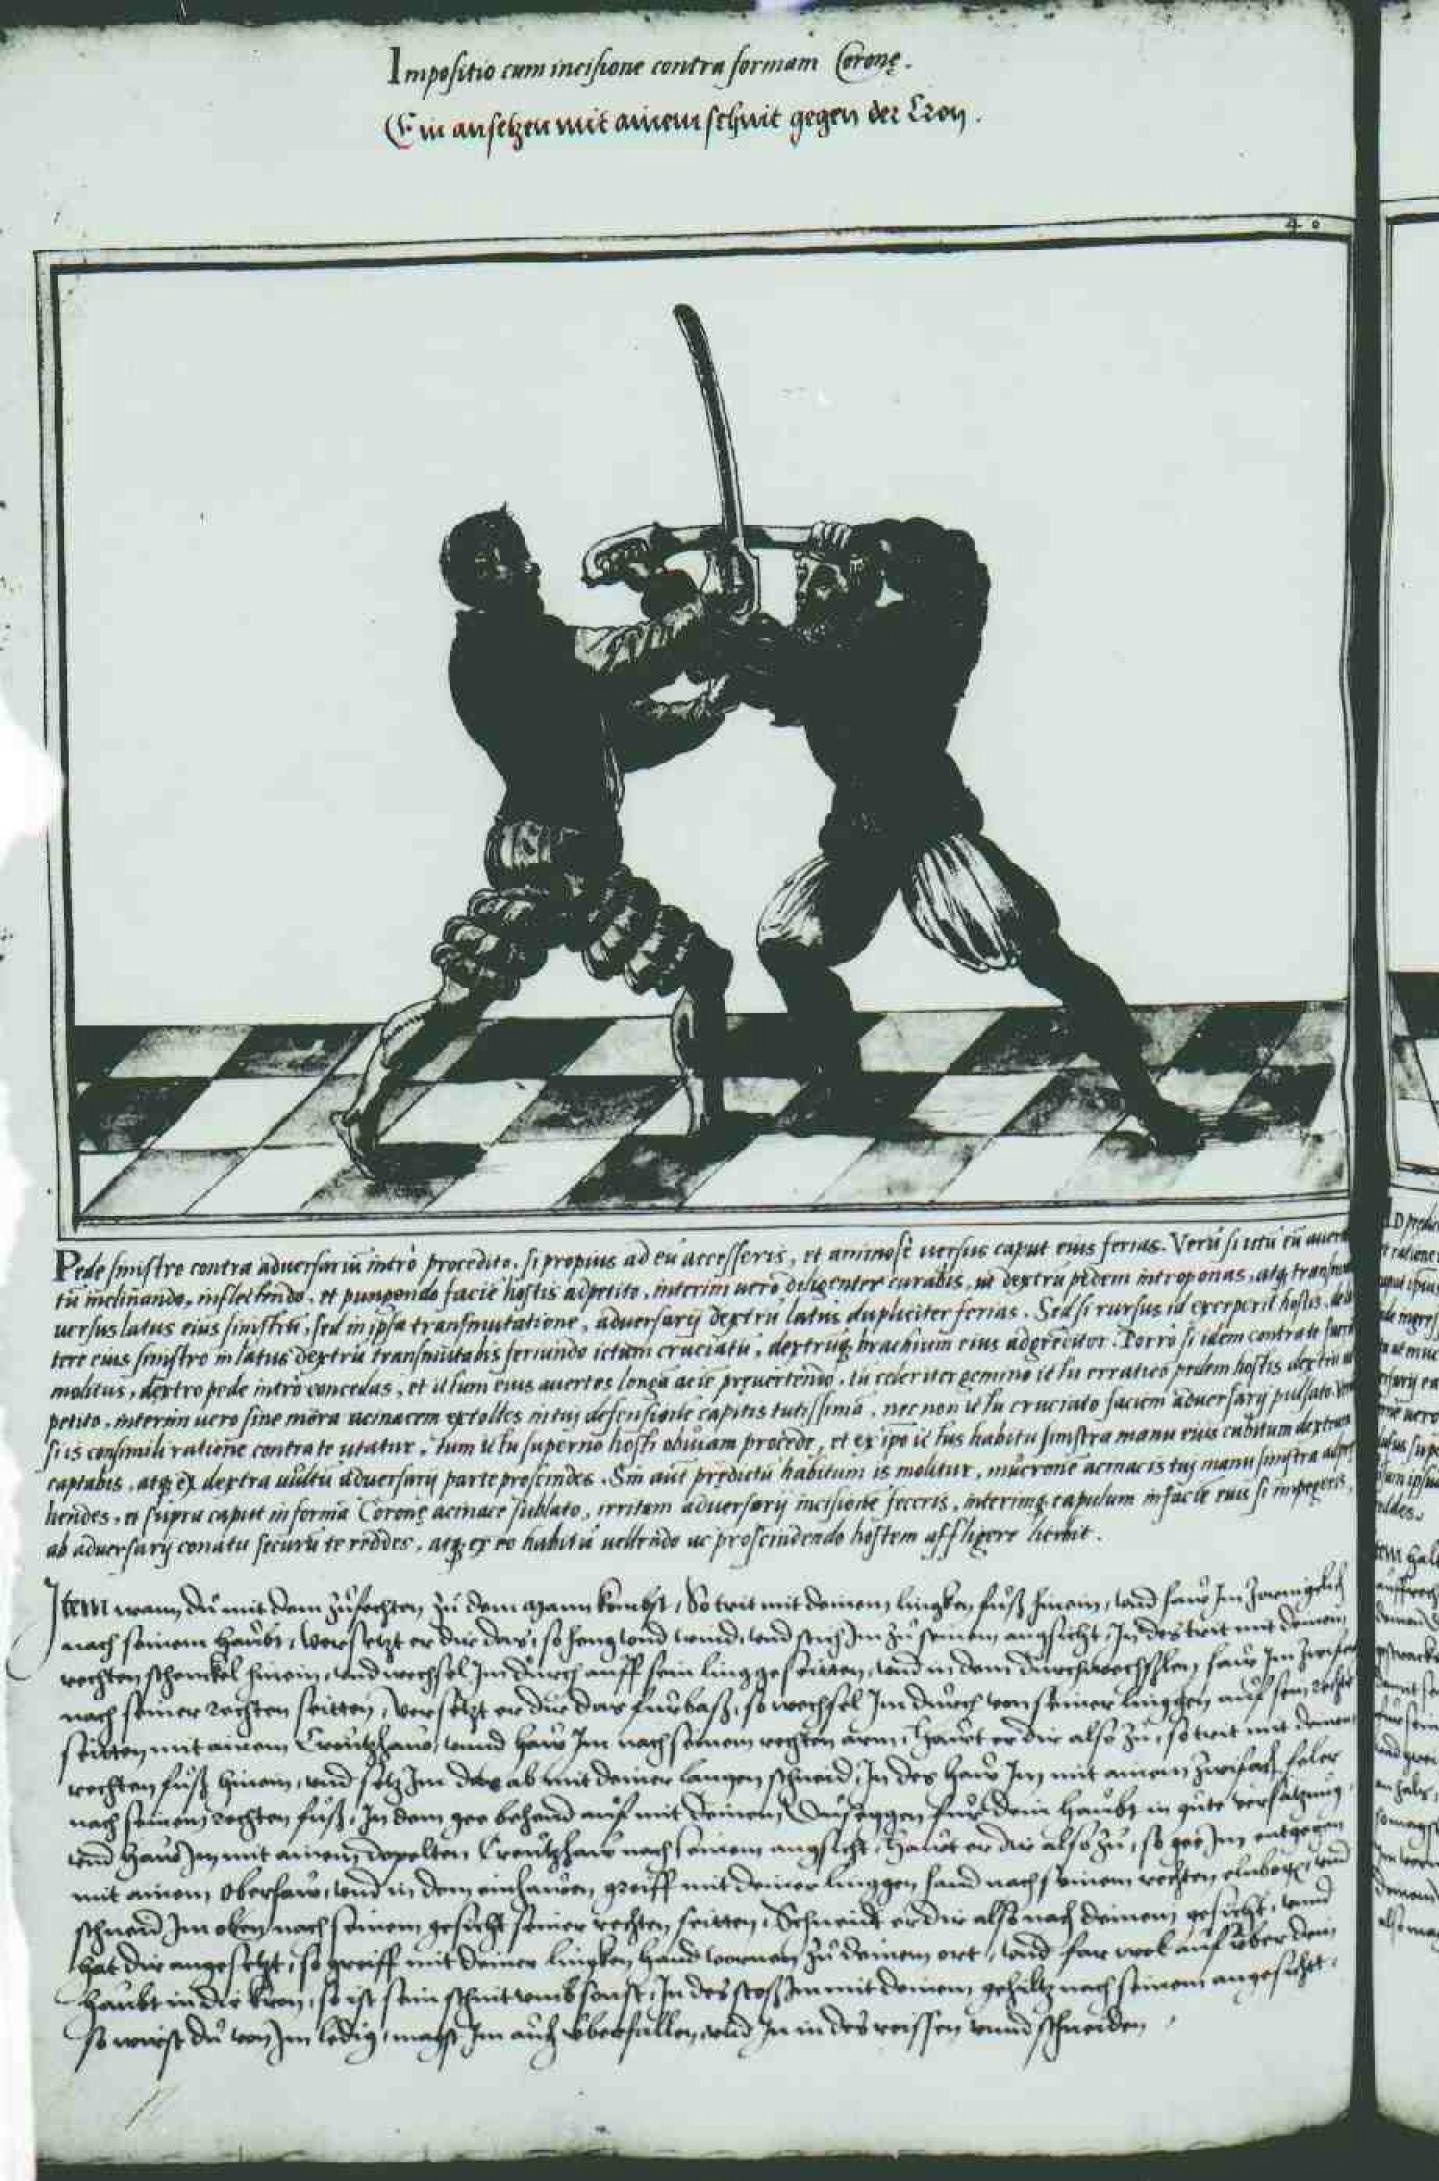 Impositio cum incisione contra formam Coronę.
Ein ansetzen mit ainem schnit gegen der Cron.
40
Pede sinistro contra adversariũ intrò procedito, si propius ad eũ accesseris, et animosè versus caput eius ferias. Verũ si ictũ eũ
tũ inclinando, inflectendo, et pungendo facie hostis adpetito, interim verò diligenter curabis, ut dextrũ pedem introponas, atq
versus latus eius sinistrũ, sed in ipsa transmutatione, adversarij dextrũ latus dupliciter ferias. Sed si rursus id exceperit hostis,
tere eius sinistro in latus dextrũ transmutabis feriundo ictum cruciatũ, dextrũq brachium eius adgreditor. Porrò si idem contra te
molitus, dextro pede intrò concedas, et illum eius avertes longa acie prevertendo, tu celeriter gemino ictu erratico pedem hostis dextrũ
petito, interim vero sine mora acinacem extolles in tui defensione capitis tutissima, nec non ictu cruciato faciem adversarij pulsato.
si is consimili ratione contra te utatur, tum ictu superno hosti obviam procede, et ex ipo ictus habitu sinistra manu eius cubitum dextrum
captabis, atq ex dextra vultũ adversarij parte proscindes. Sin aũt predictũ habitum is molitur, mucronẽ acinacis tui manu sinistra
hendes, et supra caput in forma Coronę acinace sublato, irritam adversarij incisionẽ feceris, interimq capulum in facie eius si impegeris,
ab adversarij conatu securũ te reddes, atq ex eo habitu vellendo ac proscindendo hostem affligere licebit.
Item wann du mit dem zufechten zu dem Mann kombst, So trit mit deinem lingken fuß hinein, und haw Im zwenigelich
nach seinem haubt, versetzt er dir das, so heng und wind, und stich Im zu seinem angsicht, In des trit mit deinem
rechten schenckel hinein, und wechsel Im durch auff sein lingge seitten, und in dem durchwechslen haw Im zwifach
nach seiner rechten seitten, versetzt er dir das furbaß, so wechsel Im durch von seiner linggen auf sein rechte
seitten mit ainem Creutzhaw, unnd haw Im nach seinem rechten arm, Hawt er dir also zu, so trit mit deinem
rechten fuß hinein, und setz Im das ab mit deiner langen schneid, In des haw Im mit ainem zwifach feler
nach seinem rechten fuß, In dem gee behend auf mit deinem Duseggen fur dein haubt in gute versatzung,
und haw Im mit ainem dopelten Creutzhaw nach seinem angsicht, Hawt er dir also zu, so gee Im entgegen
mit ainem oberhaw, und in dem einhawen greiff mit deiner linggen hand nach seinem rechten elnbogen, und
schneid Im oben nach seinem gesicht seiner rechten seitten, Schneidt er dir also nach deinem gesicht, unnd
hat dir angesetzt, so greiff mit deiner lingken hand vornen zu deinem ort, und far wol auf uber dein
haubt in die kron, so ist sein schnit umbsonst, In des stoß Im mit deinem gehiltz nach seinem angesicht,
so wirst du von Im ledig, magst Im auch uberfallen, und In in des reissen unnd schneiden.